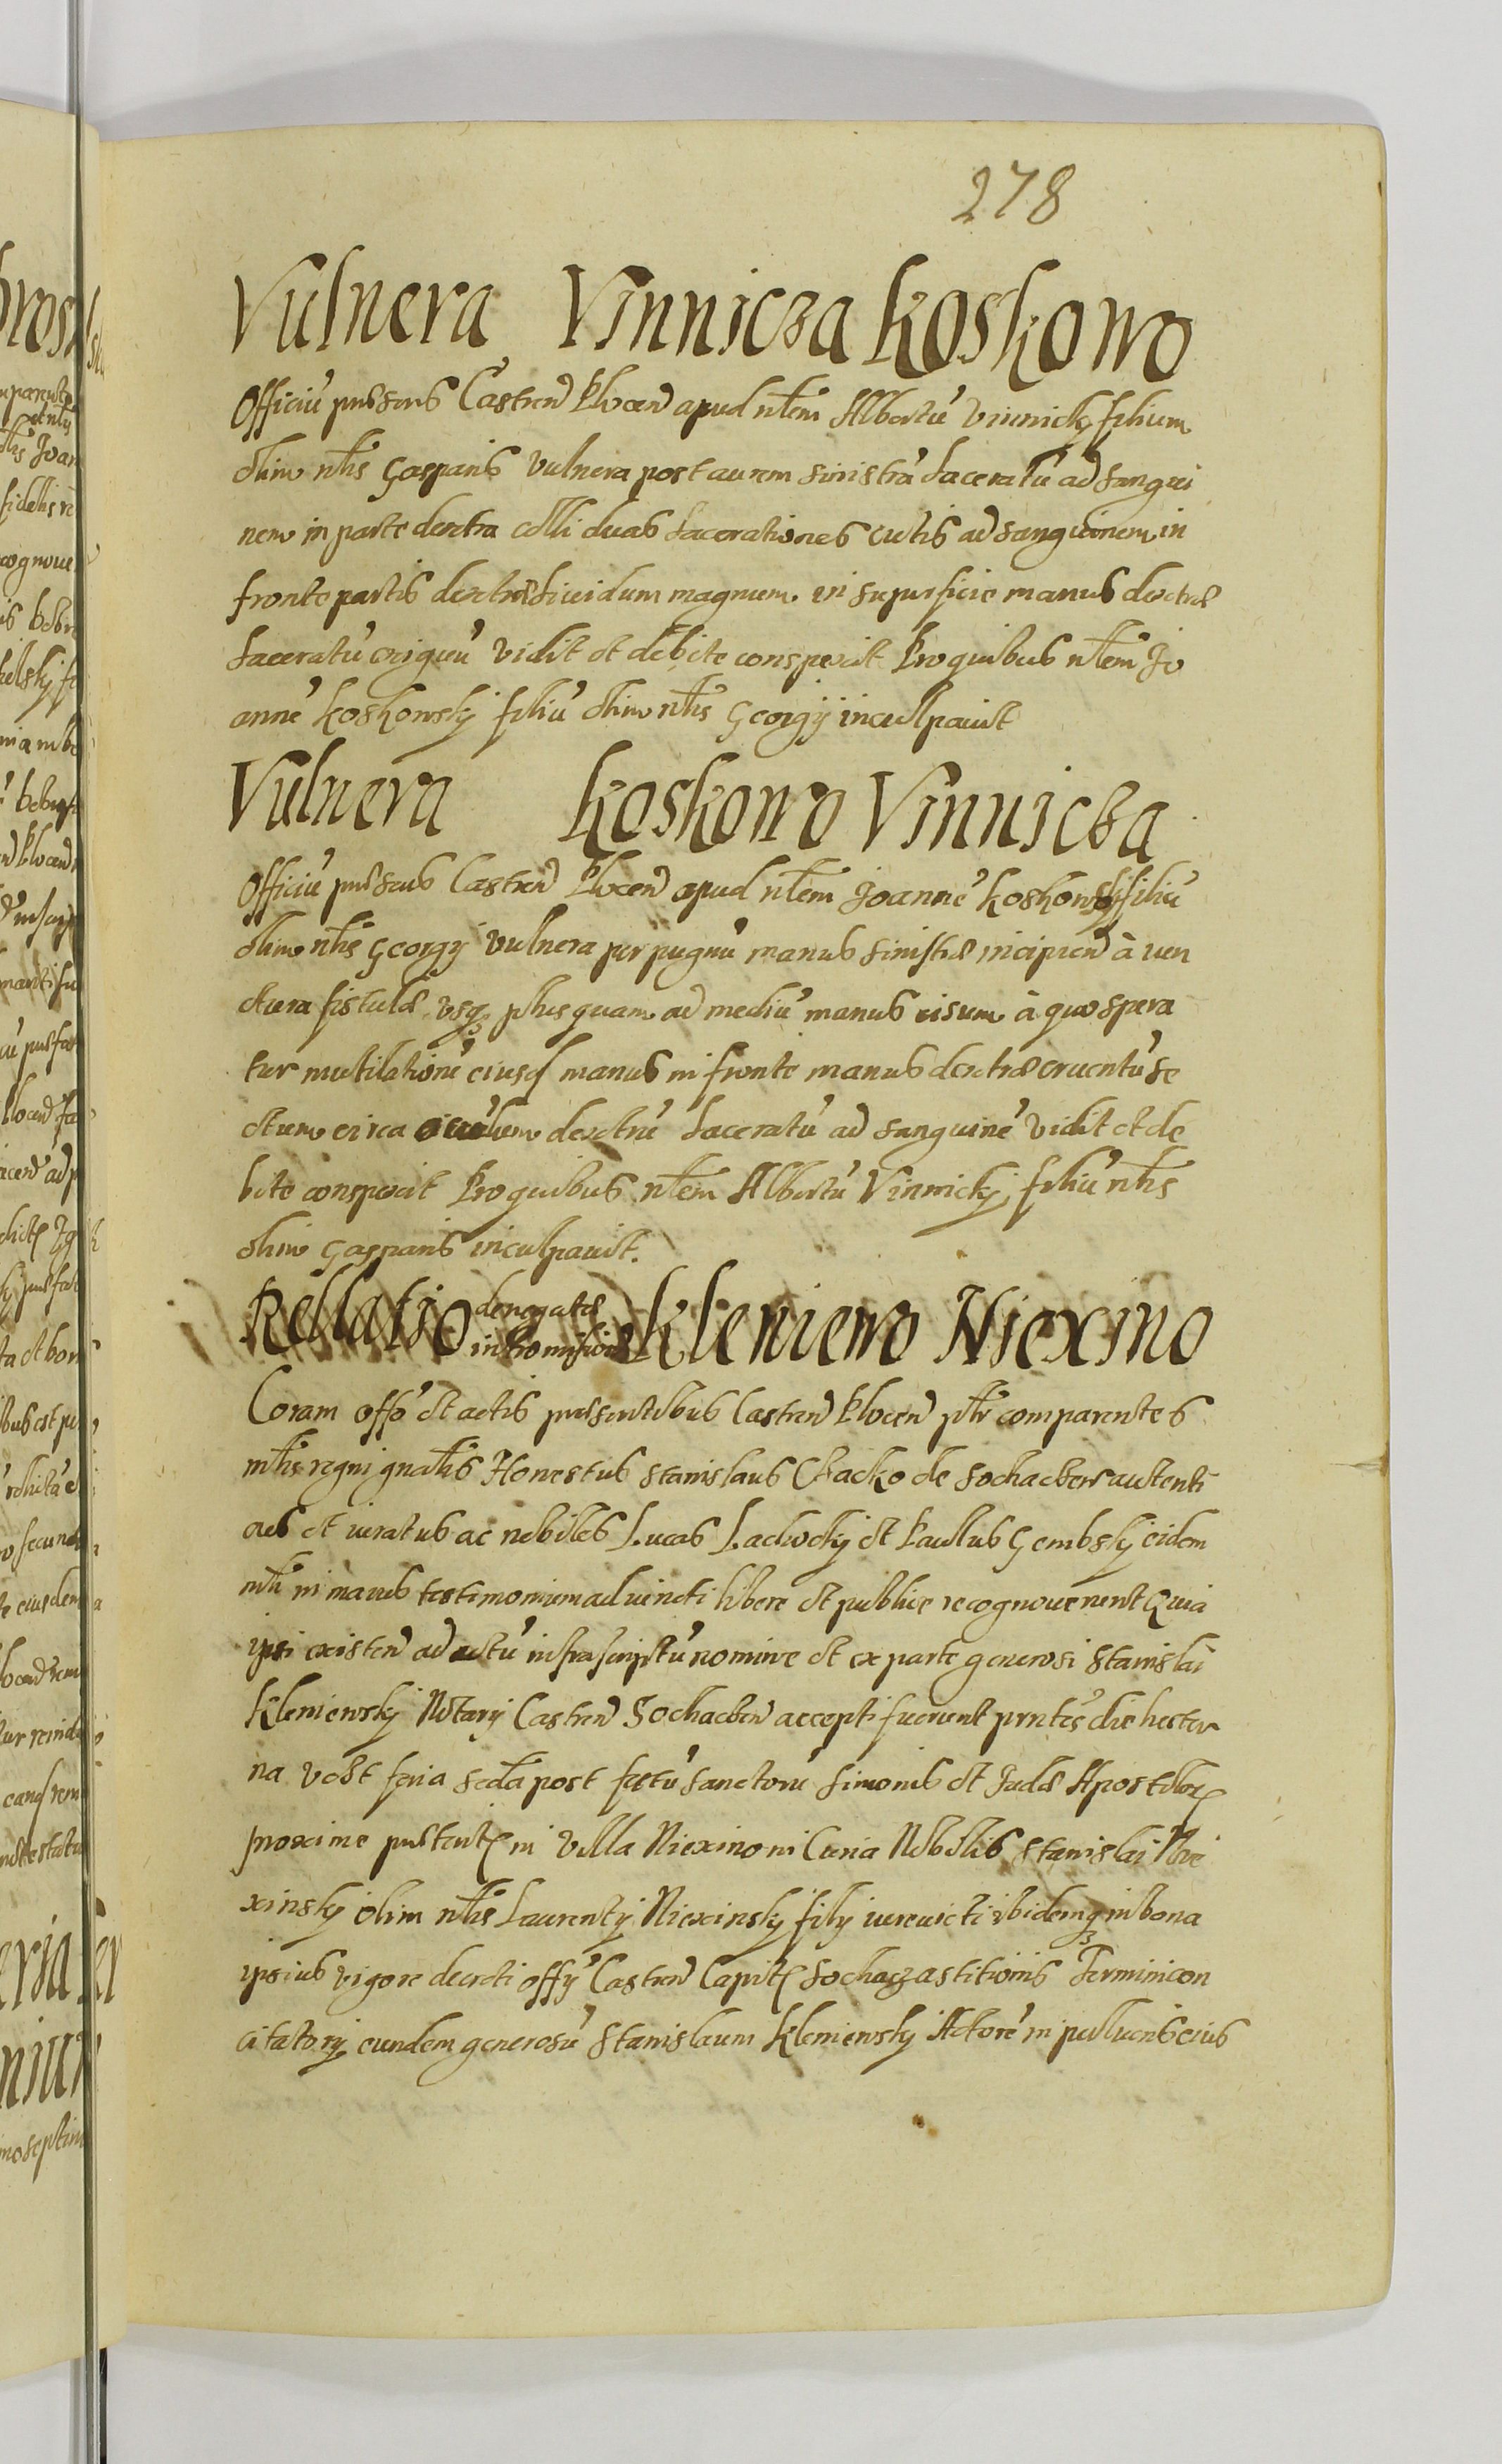 278
Vulnera Vinnicza Koskowo
Officiú pnsens Castren Plocen apud nlem Albertú Vinnicky filium
olim nlis Gasparis vulnera post aurem sinistrá laceratú ad sangui
nem in parte dextra colli duas lacerationes cutis ad sanguinem in
fronte partis dextræ lividum magnum. in superficie manus dextræ
laceratú exiguú vidit et debite conspexit Pro quibus nlem Jo
anné Koskowsky filiú olim nlis Georgij inculpavit
Vulnera Koskowo Vinnicza
Officiú pnsens Castren Plocen apud nlem Joanné Koskowsky filiú
olim nlis Georgij vulnera per pugnú manus sinistræ incipien à iun
ctura fistulæ usq plus quam ad mediú manus cisum à quo spera
tur mutilationé eiusd manus in fronte manus dextræ cruentú se
ctum circa oculum dextrú laceratú ad sanguiné vidit et de
bite conspexit Pro quibus nlem Albertú Vinnicky filiú nlis
olim Gasparis inculpavit.
Rellatio denegatæ intromissionis Kleniewo Niexino
Coram offo et actis præsentibus Castren Plocen pltr comparentes
mlis regni gnalis Honestus Stanislaus Czacko de Sochaczew autenti
cus et iuratus ac nobiles Lucas Lachocky et Paulus Gembsky eidem
mli in manus testimonium adiuncti libere et publice recognoverunt Quia
ipsi existen ad actú infrascriptú nomine et ex parte generosi Stanislai
Kleniewsky Notarij Castren Sochaczen accepti fuerunt prntes die hester
na vdlt feria scda post festú sanctorú Simonis et Judæ Apostolor
proxime pnstent in villa Niexino in Curia Nobilis Stanislai Nie
xinsky olim nlis Laurentij Niexinsky filij iurevicti ibidemq in bona
ipsius vigore decreti offij Castren Capit Sochacz astitionis Termini con
citatorij eundem generosú Stanislaum Kleniewsky Actoré in pulluens eius